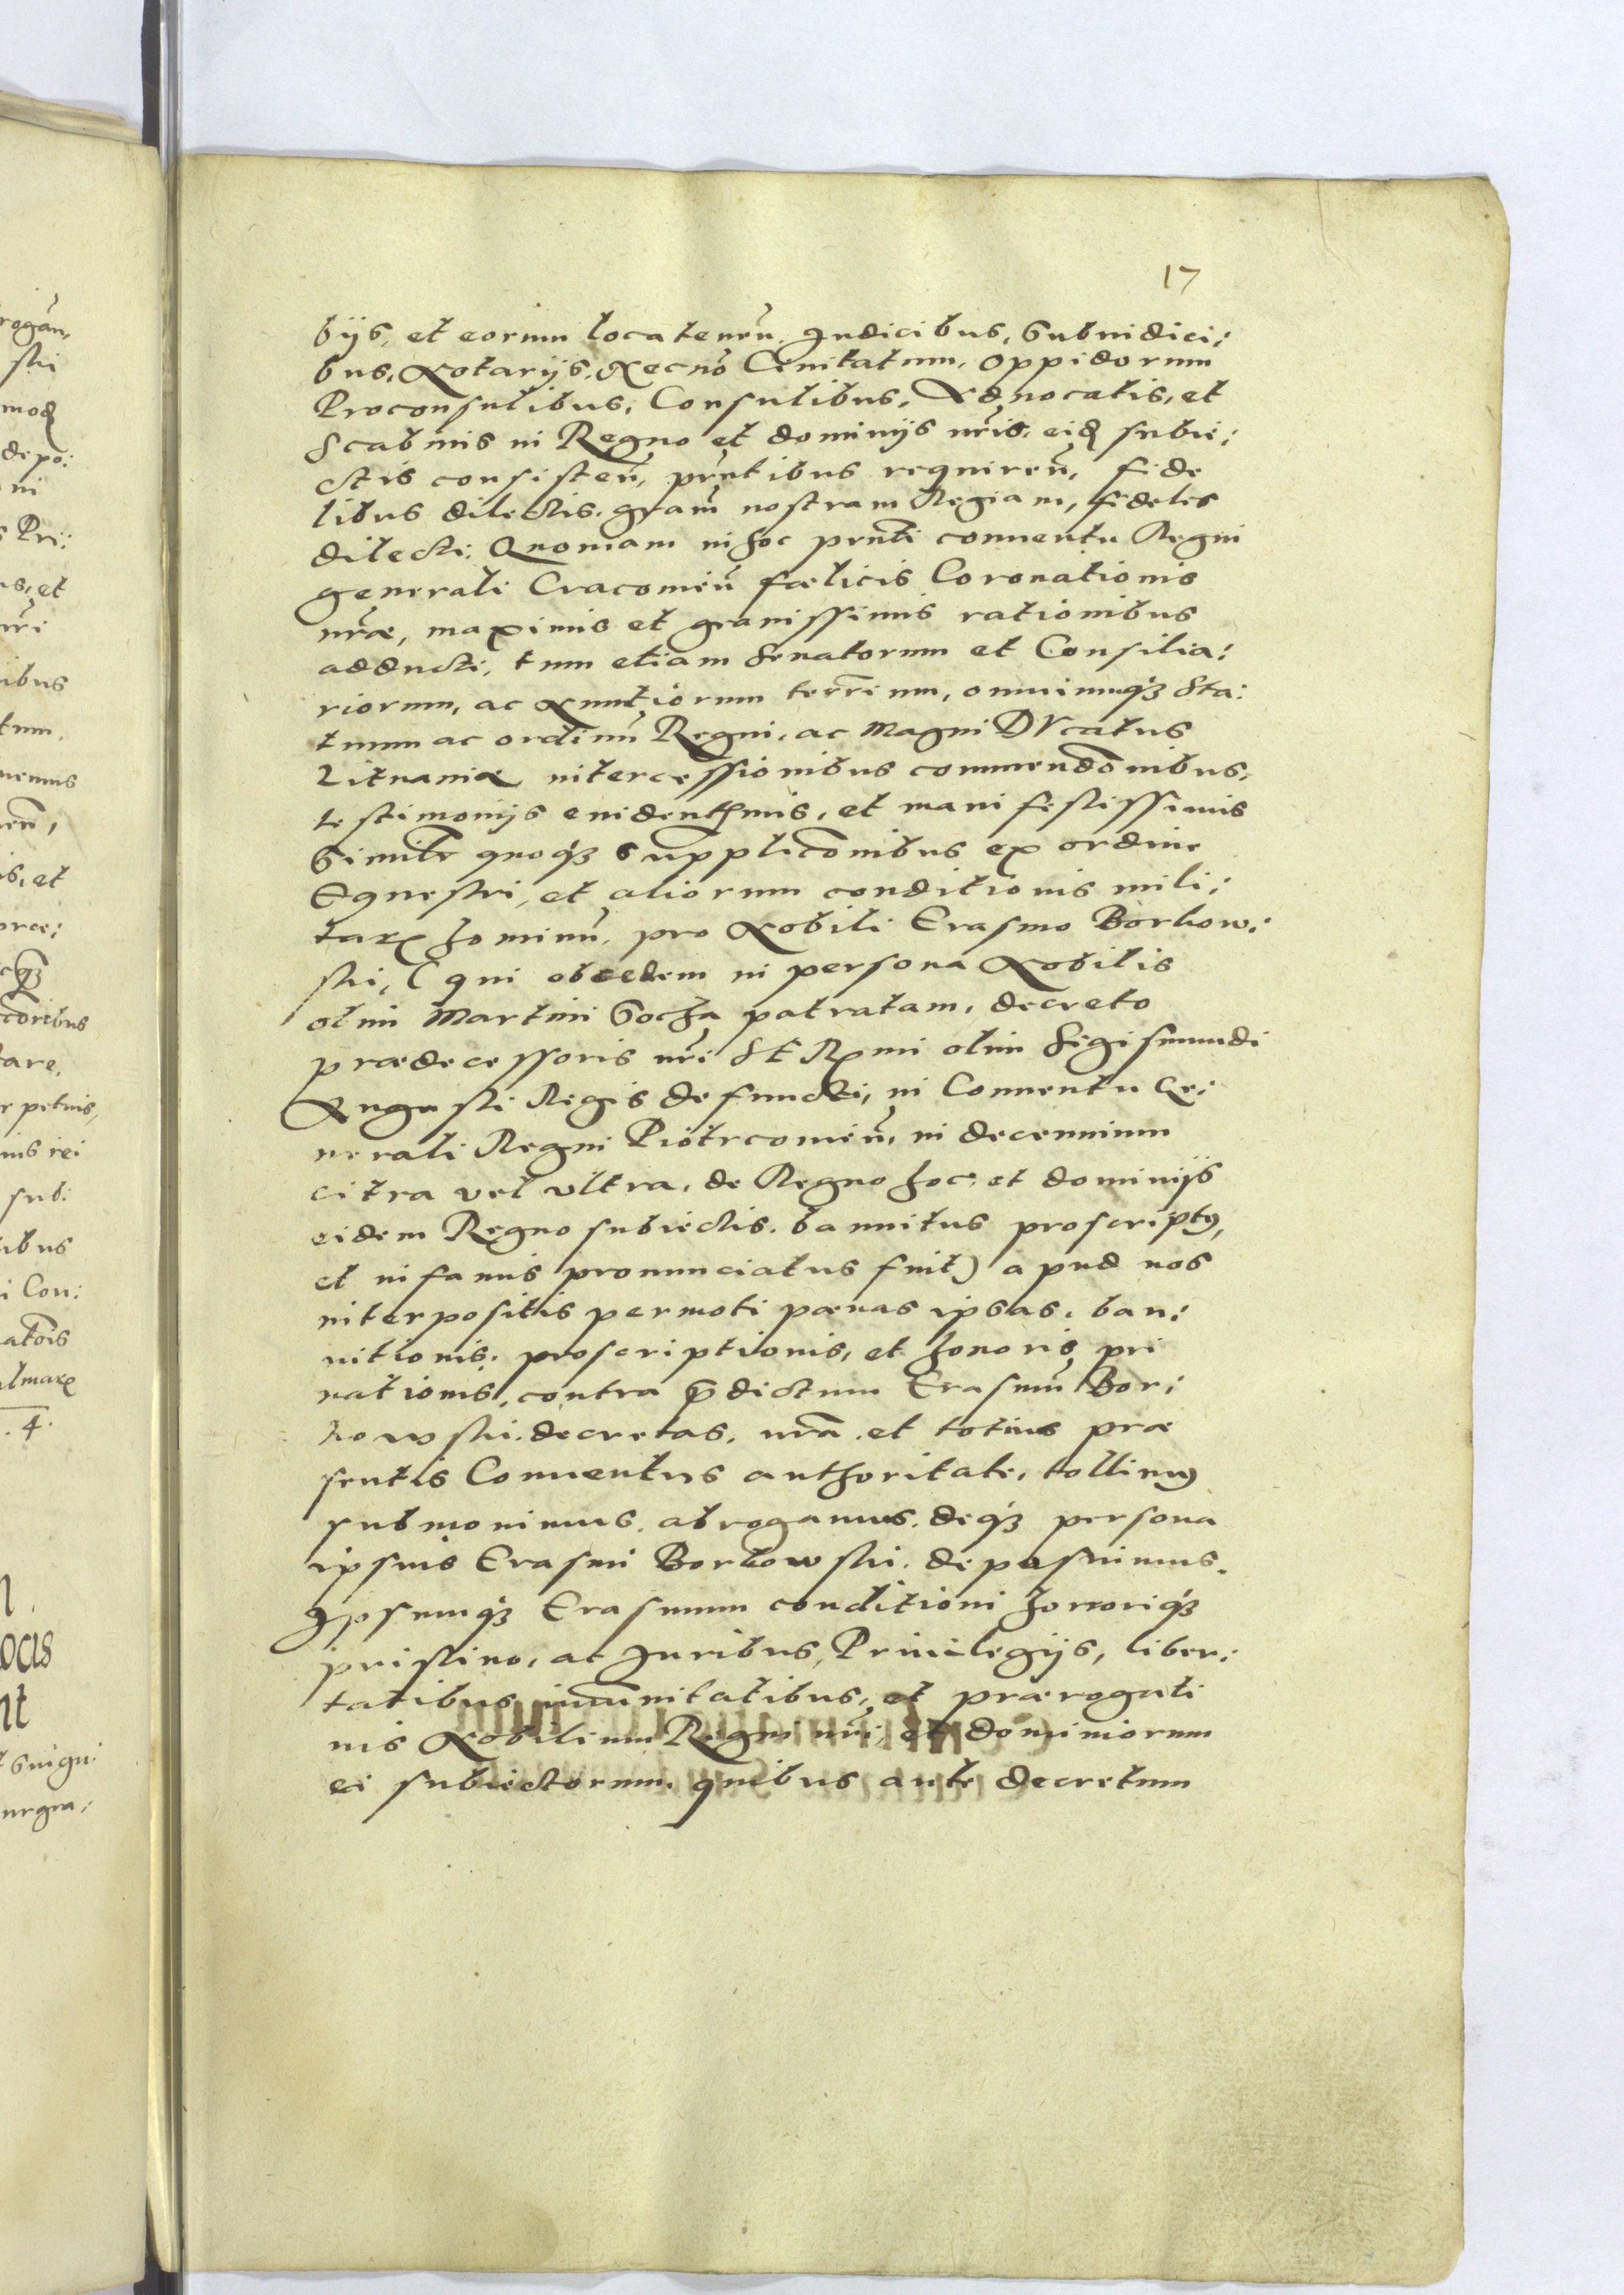 17
bijs, et eorum locatenen̄. Iudicibus, Subiudici:
bus, Notarijs, Necnō Ciuitatum, Oppidorum
Proconsulibus, Consulibus, Aduocatis, et
Scabinis in Regno et dominijs nr̄is, eiꝗ subie:
ctis consisten̄, pn̄tibus requiren̄, fide
libus dilectis, gram̄ nostram Regiam, fideles
dilecti. Quoniam in hoc pn̄ti conuentu Regni
generali Cracouien̄ fœlicis Coronationis
nr̄æ, maximis et grauissimis rationibus
adducti, tum etiam Senatorum et Consilia:
riorum, ac Nuntiorum terr̄rum, omniumqꝫ Sta:
tuum ac ordinū Regni, ac Magni DVcatus
Lituaniæ intercessionibus commendōnibus,
testimonijs euidentissimis, et manifestissimis
Similr̄ quoqꝫ supplicōnibus ex ordine
Equestri, et aliorum conditionis mili:
tarꝭ hominū, pro Nobili Erasmo Borkow:
ski, (qui ob cædem in persona Nobilis
olim Martini Socha patratam, decreto
prædecessoris nr̄i Sr̄ Rx̄mi olim Sigismundi
Augusti Regis defuncti, in Conuentu Ge:
nerali Regni Piotrcouien̄, in decennium
citra vel vltra, de Regno hoc, et dominijs
eidem Regno subiectis, bannitus proscriptꝰ,
et infamis pronunciatus fuit) apud nos
interpositis permoti pœnas ipsas, ban:
nitionis, proscriptionis, et honoris pri
uationis, contra p̄dictum Erasmū Bor:
kowski decretas, nr̄a et totius præ
sentis Conuentus authoritate, tollimꝰ
submouimus, abrogamus, deqꝫ persona
ipsius Erasmi Borkowski deposuimus.
Ipsumqꝫ Erasmum conditioni honoriqꝫ
pristino, ac Iuribus, Priuilegijs, liber:
tatibus im̄unitatibus, et prærogati
uis Nobilium Regni nr̄i, et dominiorum
ei subiectorum, quibus ante decretum